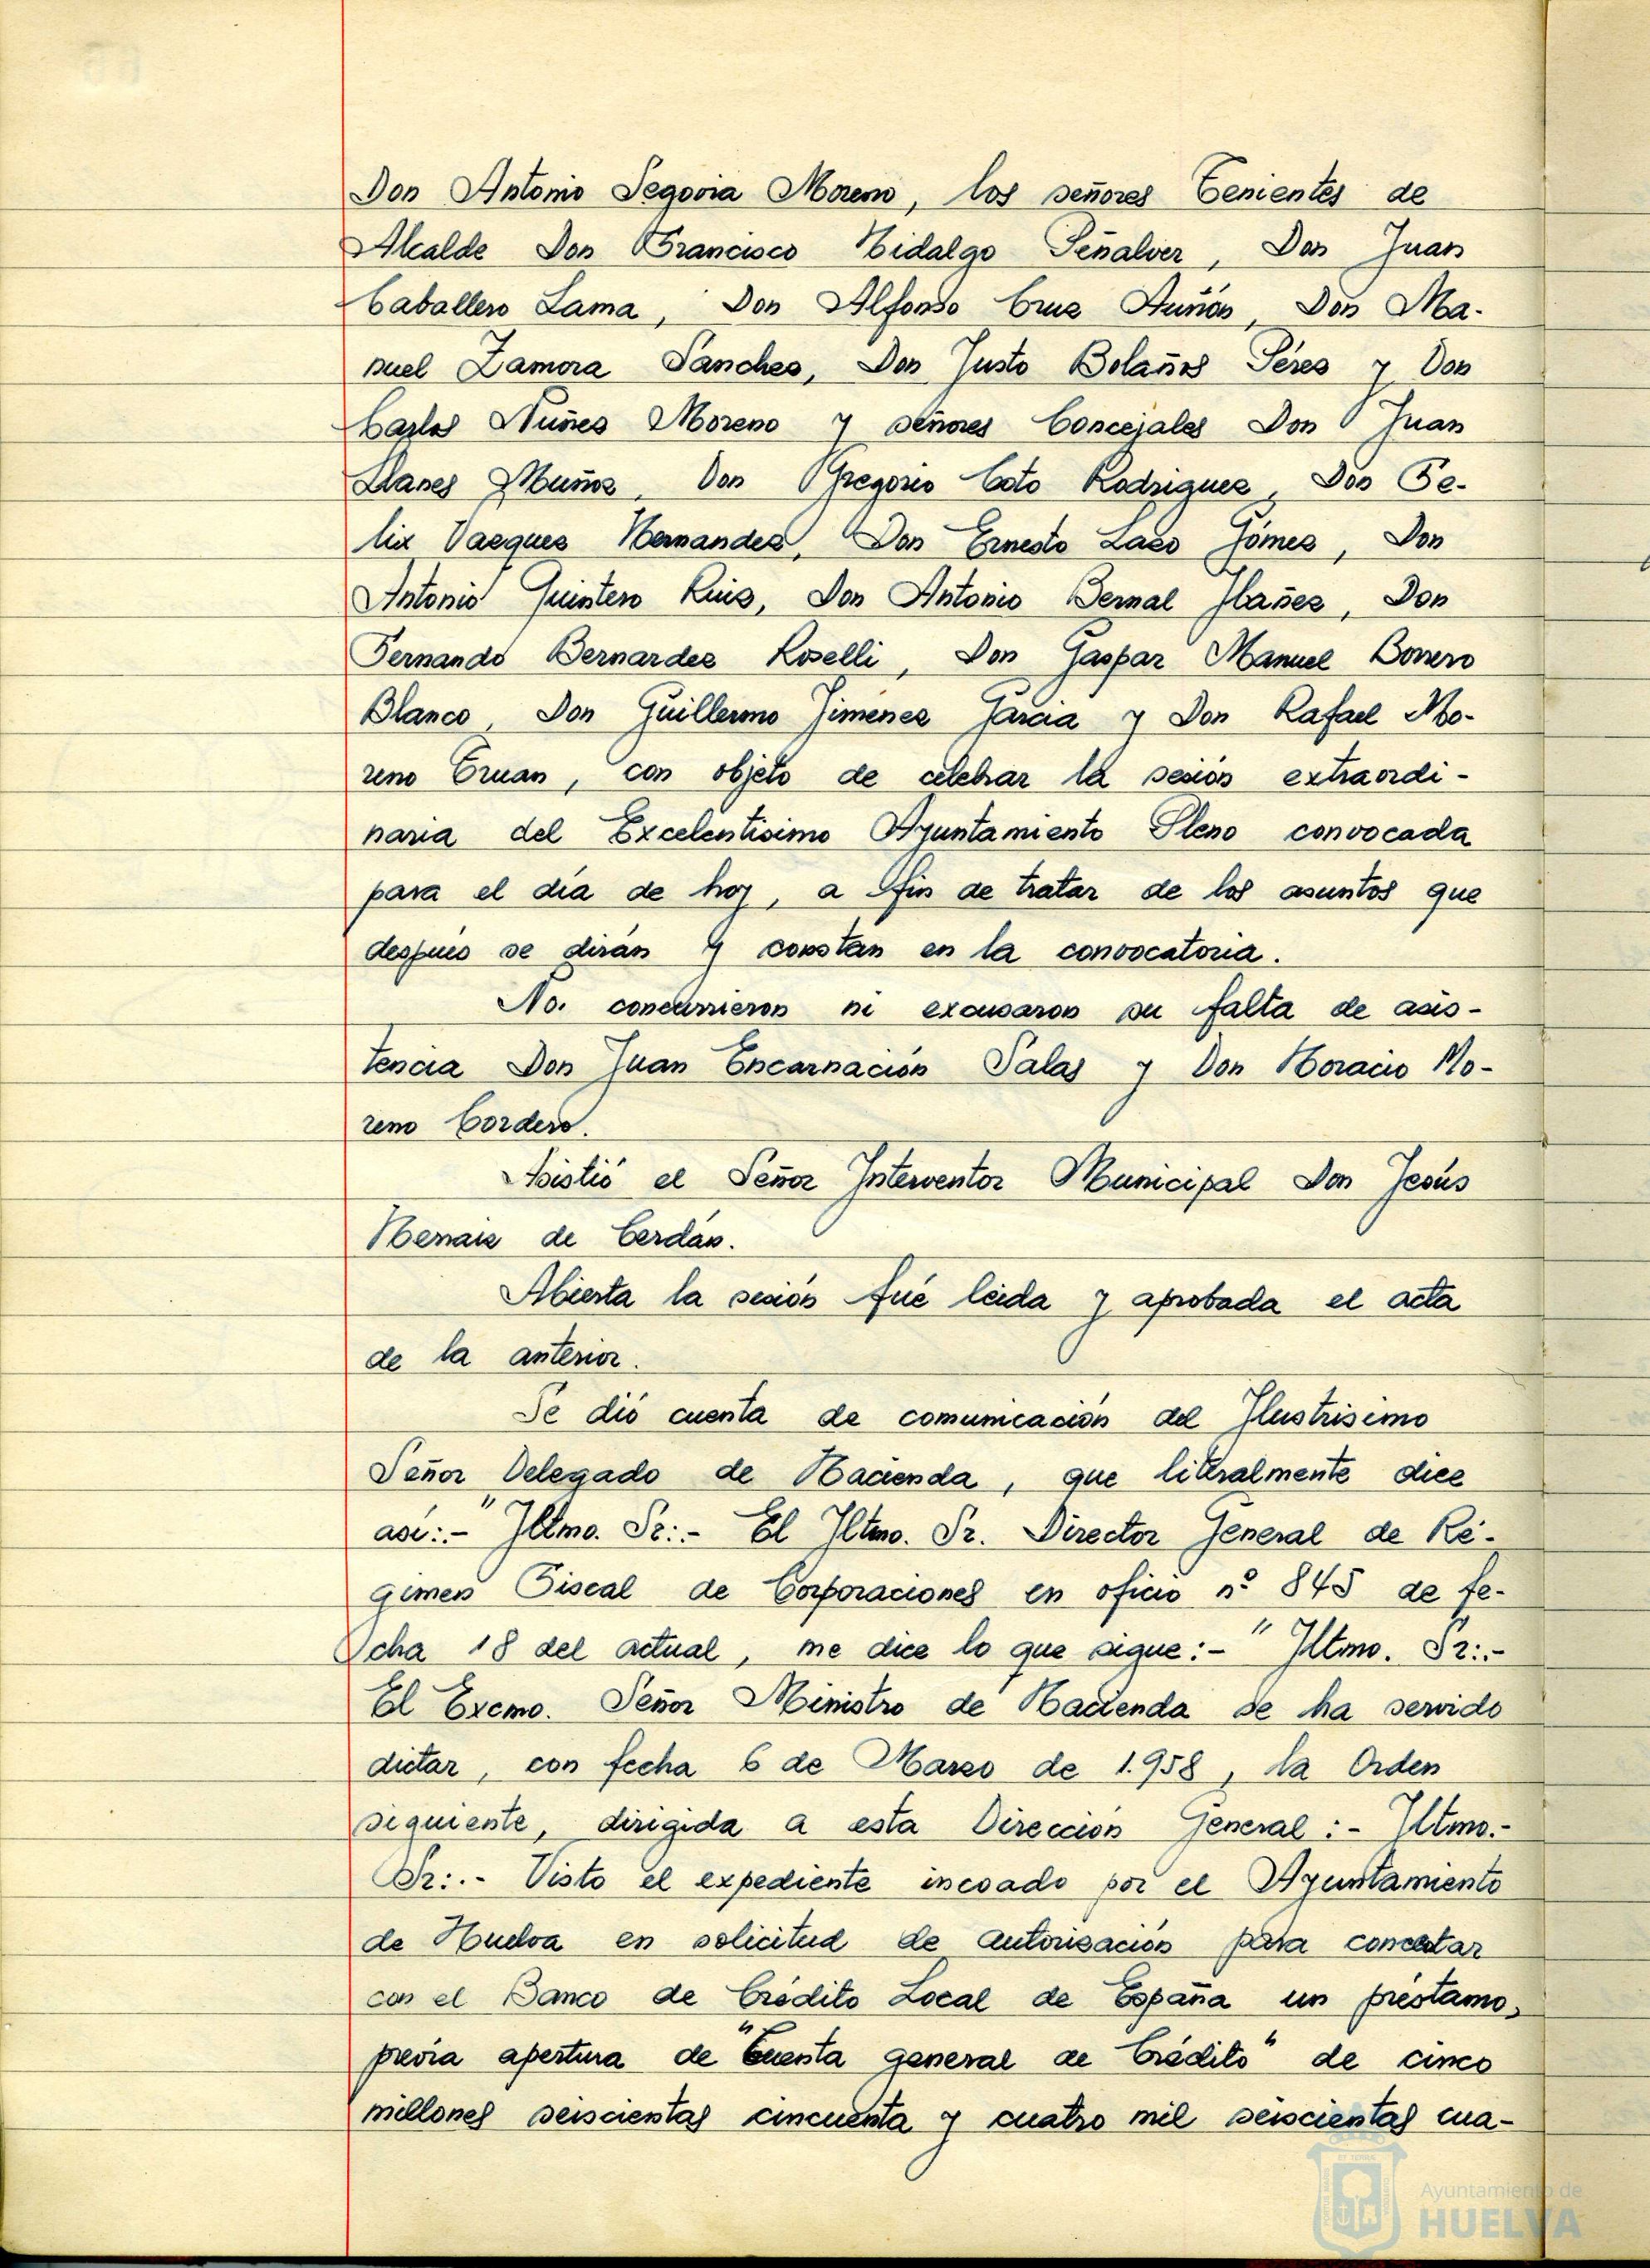 Don Antonio Segovia Moreno, los señores Tenientes de
Alcalde Don Francisco Hidalgo Peñalver, Don Juan
Caballero Lama, Don Alfonso Cruz Auñón, Don Ma-
nuel Zamora Sanchez, Don Justo Bolaños Pérez y Don
Carlos Nuñez Moreno y señores Concejales Don Juan
Llanes Muñoz, Don Gregorio Coto Rodriguez, Don Fe-
lix Vazquez Hernandez, Don Ernesto Lazo Gómez, Don
Antonio Quintero Ruiz, Don Antonio Bernal Ibañez, Don
Fernando Bernardez Roselli, Don Gaspar Manuel Borrero
Blanco, Don Guillermo Jiménez Garcia y Don Rafael Mo-
reno Eruan, con objeto de celebrar la sesión extraordi-
naria del Excelentisimo Ayuntamiento Pleno convocada
para el día de hoy, a fin de tratar de los asuntos que
después se dirán y constan en la convocatoria.
No. concurrieron ni excusaron su falta de asis-
tencia Don Juan Encarnación Salas y Don Horacio Mo-
reno Cordero.
Asistió el Señor Interventor Municipal Don Jesús
Hernaiz de Cerdán.
Abierta la sesión fué leida y aprobada el acta
de la anterior.
Se dió cuenta de comunicación del Ilustrisimo
Señor Delegado de Hacienda, que literalmente dice
asi:- "Iltmo. Sr:.- El Iltmo. Sr. Director General de Ré-
gimen Fiscal de Corporaciones en oficio nº 845 de fe-
cha 18 del actual, me dice lo que sigue:- "Iltmo. Sr:.-
El Excmo. Señor Ministro de Hacienda se ha servido
dictar, con fecha 6 de Marzo de 1.958, la Orden
siguiente, dirigida a esta Dirección General:- Iltmo.-
Sr:.- Visto el expediente incoado por el Ayuntamiento
de Huelva en solicitud de autorización para concertar
con el Banco de Crédito Local de España un préstamo,
previa apertura de "Cuenta general de Crédito" de cinco
millones seiscientas cincuenta y cuatro mil seiscientas cua-
Ayuntamiento de
HUELVA